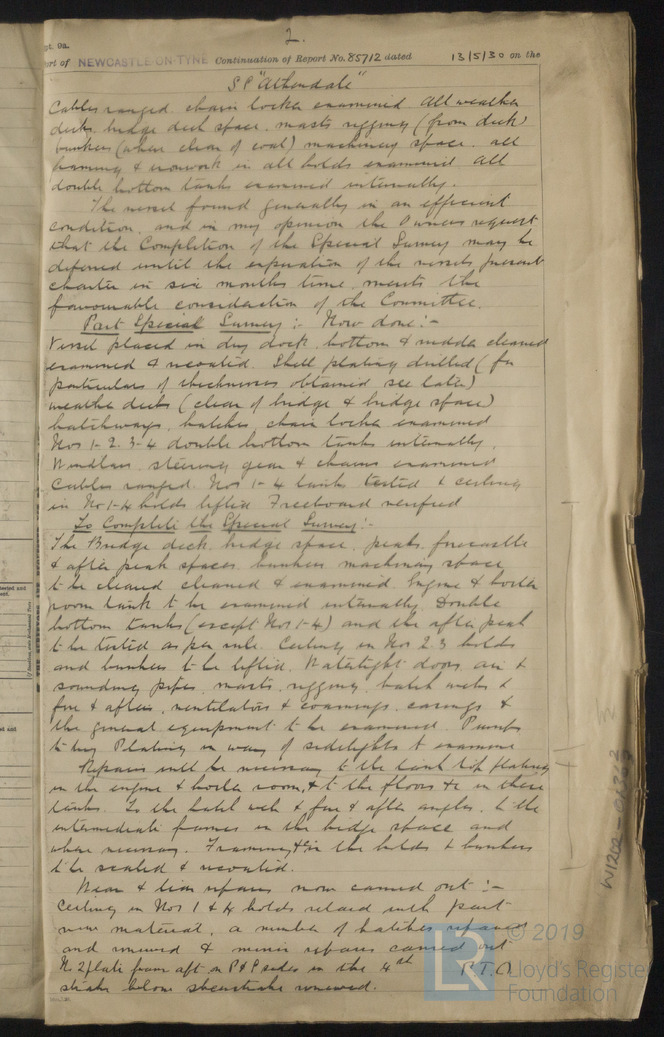 2.
pt. 9a.
ort of NEWCASTLE-ON-TYNE Continuation of Report No. 85712 dated 13/5/30 on the
SS "Allendale"
Cables ranged. chain locker examined All weather
decks. bridge deck space. masts rigging (from deck)
bunkers (where clear of coal) machinery space. all
framing & ironwork in all holds examined All
double bottom tanks examined internally.
The vessel found generally in an efficient
condition, and in my opinion the Owners request
that the Completion of the Special Survey may be
deferred until the expiration of the vessels present
charter in six months time, merits the
favourable consideration of the Committee.
Part Special Survey :- Now done :-
Vessel placed in dry dock. bottom & rudder cleaned
examined & recoated. Shell plating drilled (for
particulars of thicknesses obtained see later)
weather decks (clear of bridge & bridge space)
hatchways, hatches, chain locker examined
Nos 1-2-3-4 double bottom tanks internally.
Windlass, steering gear & chains examined
Cables ranged. Nos 1-4 tanks tested & ceiling
in No 1-4 holds lifted Freeboard verified
To Complete the Special Survey :-
The Bridge deck, bridge space, peaks, forecastle
& after peak spaces bunkers machinery space
to be cleared cleaned & examined. Engine & boiler
room tank to be examined internally. Double
bottom tanks (except Nos 1-4) and the after peak
to be tested as per rule. Ceiling in Nos 2.3 holds
and bunkers to be lifted. Watertight doors, air &
sounding pipes, masts, rigging, hatch webs &
fore & afters, ventilators & coamings, casings &
the general equipment to be examined. Pumps
to try Plating in way of sidelights to examine
Repairs will be necessary to the tank top plating
in the engine & boiler room, & to the floors &c in these
tanks. To the hatch web & fore & after angles, to the
intermediate frames in the bridge space and
where necessary. Framing &c in the holds & bunkers
to be scaled & recoated.
Wear & tear repairs now carried out :-
Ceiling in Nos 1 & 4 holds relaid with part
new material, a number of hatches repaired
and renewed & minor repairs carried out
N. 2 plate from aft on P & P sides in the 4th P.T.O
strake below sheerstrake renewed.
© 2019
LR
Lloyd's Register
Foundation